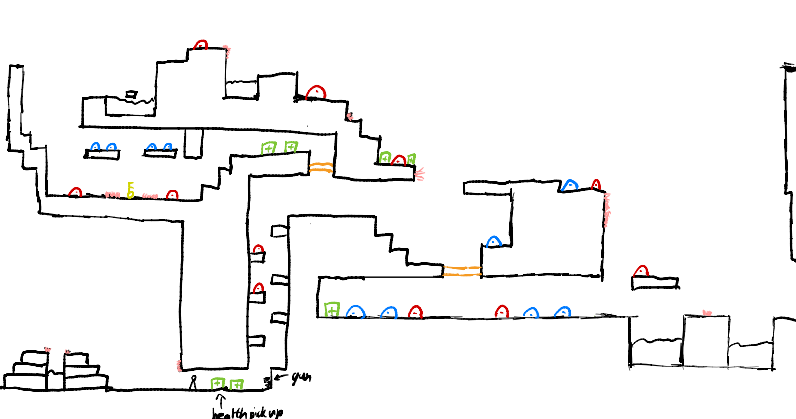 E
gun
health pick up